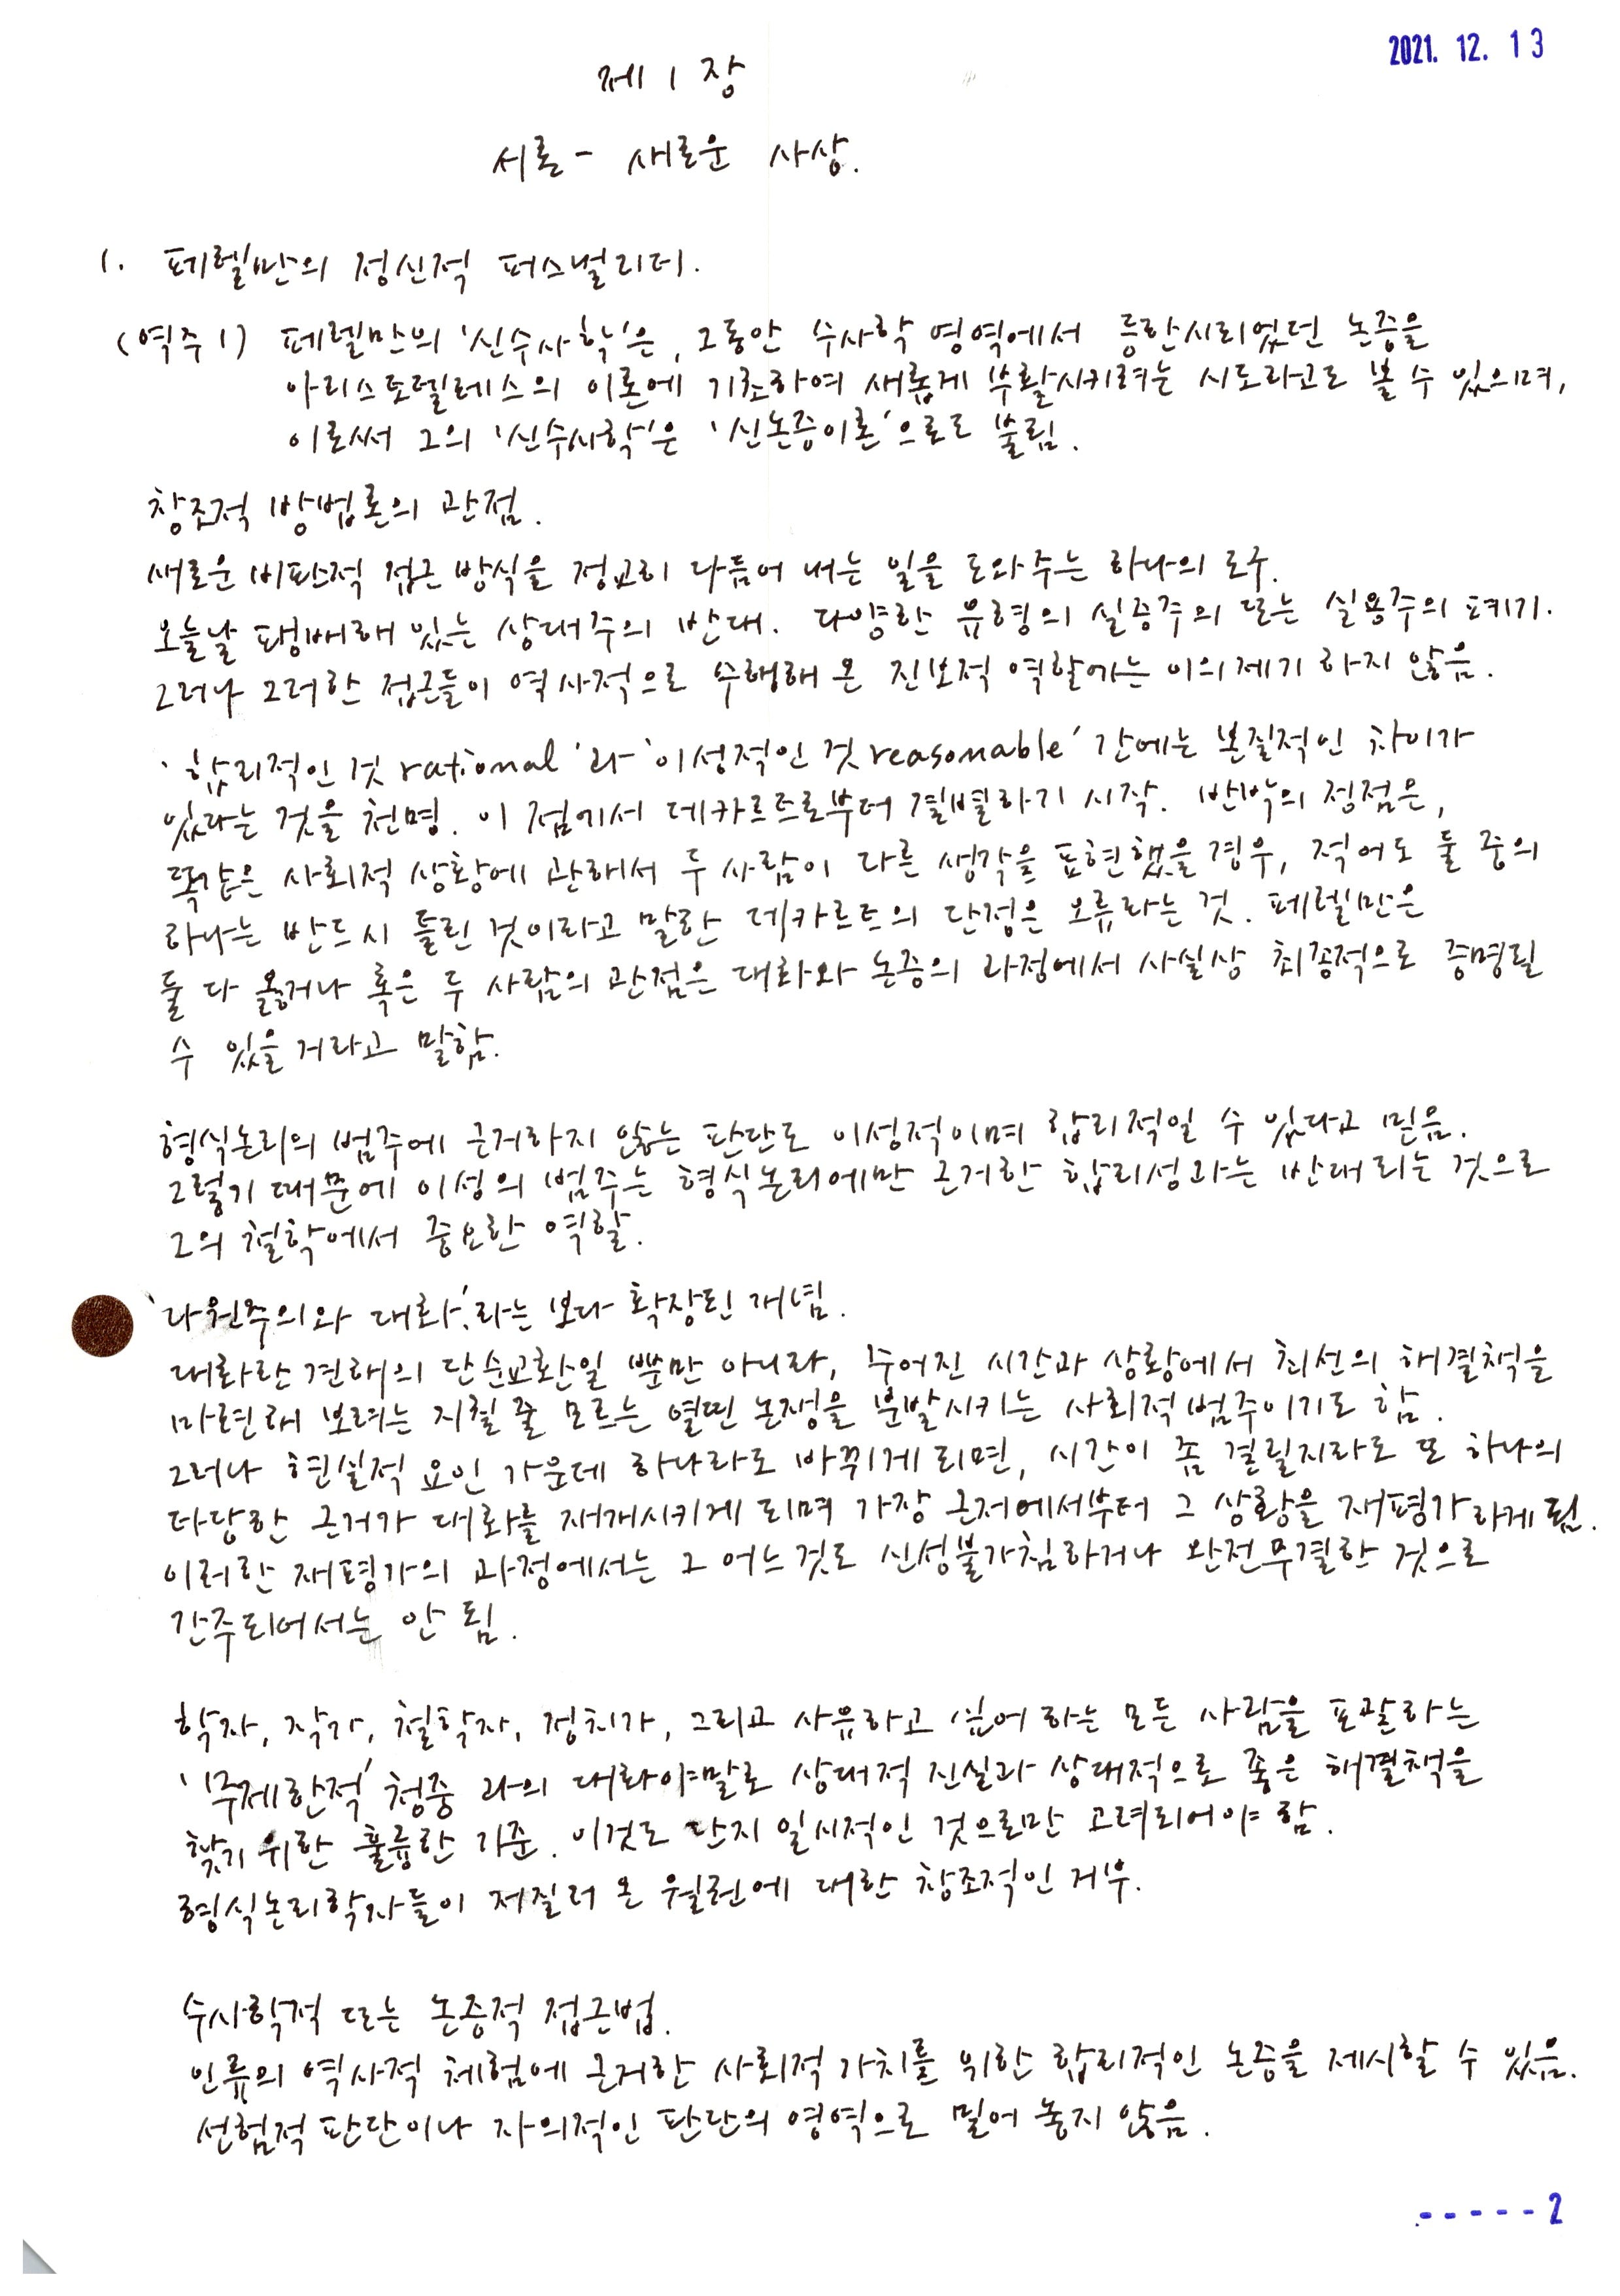 2021. 12. 13
제 1 장
서론 - 새로운 사상.
1. 페렐만의 정신적 퍼스널리티.
(역주 1) 페렐만의 '신수사학'은, 그동안 수사학 영역에서 등한시되었던 논증을
아리스토텔레스의 이론에 기초하여 새롭게 부활시키려는 시도라고도 볼 수 있으며,
이로써 그의 '신수사학'은 '신논증이론'으로도 불림.
창조적 방법론의 관점.
새로운 비판적 접근 방식을 정교히 다듬어 내는 일을 도와주는 하나의 도구.
오늘날 팽배해 있는 상대주의 반대. 다양한 유형의 실증주의 또는 실용주의 포기.
그러나 그러한 접근들이 역사적으로 수행해 온 진보적 역할에는 이의제기 하지 않음.
'합리적인 것 rational'과 '이성적인 것 reasonable' 간에는 본질적인 차이가
있다는 것을 천명. 이 점에서 데카르트로부터 결별하기 시작. 반박의 정점은,
똑같은 사회적 상황에 관해서 두 사람이 다른 생각을 표현했을 경우, 적어도 둘 중의
하나는 반드시 틀린 것이라고 말한 데카르트의 단정은 오류라는 것. 페렐만은
둘 다 옳거나 혹은 두 사람의 관점은 대화와 논증의 과정에서 사실상 최종적으로 증명될
수 있을 거라고 말함.
형식논리의 범주에 근거하지 않는 판단도 이성적이며 합리적일 수 있다고 믿음.
그렇기 때문에 이성의 범주는 형식논리에만 근거한 합리성과는 반대되는 것으로
그의 철학에서 중요한 역할.
'다원주의와 대화'라는 보다 확장된 개념.
대화란 견해의 단순교환일 뿐만 아니라, 주어진 시간과 상황에서 최선의 해결책을
마련해 보려는 지칠 줄 모르는 열띤 논쟁을 분발시키는 사회적 범주이기도 함.
그러나 현실적 요인 가운데 하나라도 바뀌게 되면, 시간이 좀 걸릴지라도 또 하나의
타당한 근거가 대화를 재개시키게 되며 가장 근저에서부터 그 상황을 재평가하게 됨.
이러한 재평가의 과정에서는 그 어느것도 신성불가침하거나 완전무결한 것으로
간주되어서는 안 됨.
학자, 작가, 철학자, 정치가, 그리고 사유하고 싶어 하는 모든 사람을 포괄하는
'무제한적' 청중 과의 대화야말로 상대적 진실과 상대적으로 좋은 해결책을
찾기 위한 훌륭한 기준. 이것도 단지 일시적인 것으로만 고려되어야 함.
형식논리학자들이 저질러 온 월권에 대한 창조적인 거부.
수사학적 또는 논증적 접근법.
인류의 역사적 체험에 근거한 사회적 가치를 위한 합리적인 논증을 제시할 수 있음.
선험적 판단이나 자의적인 판단의 영역으로 밀어 놓지 않음.
- - - - - 2